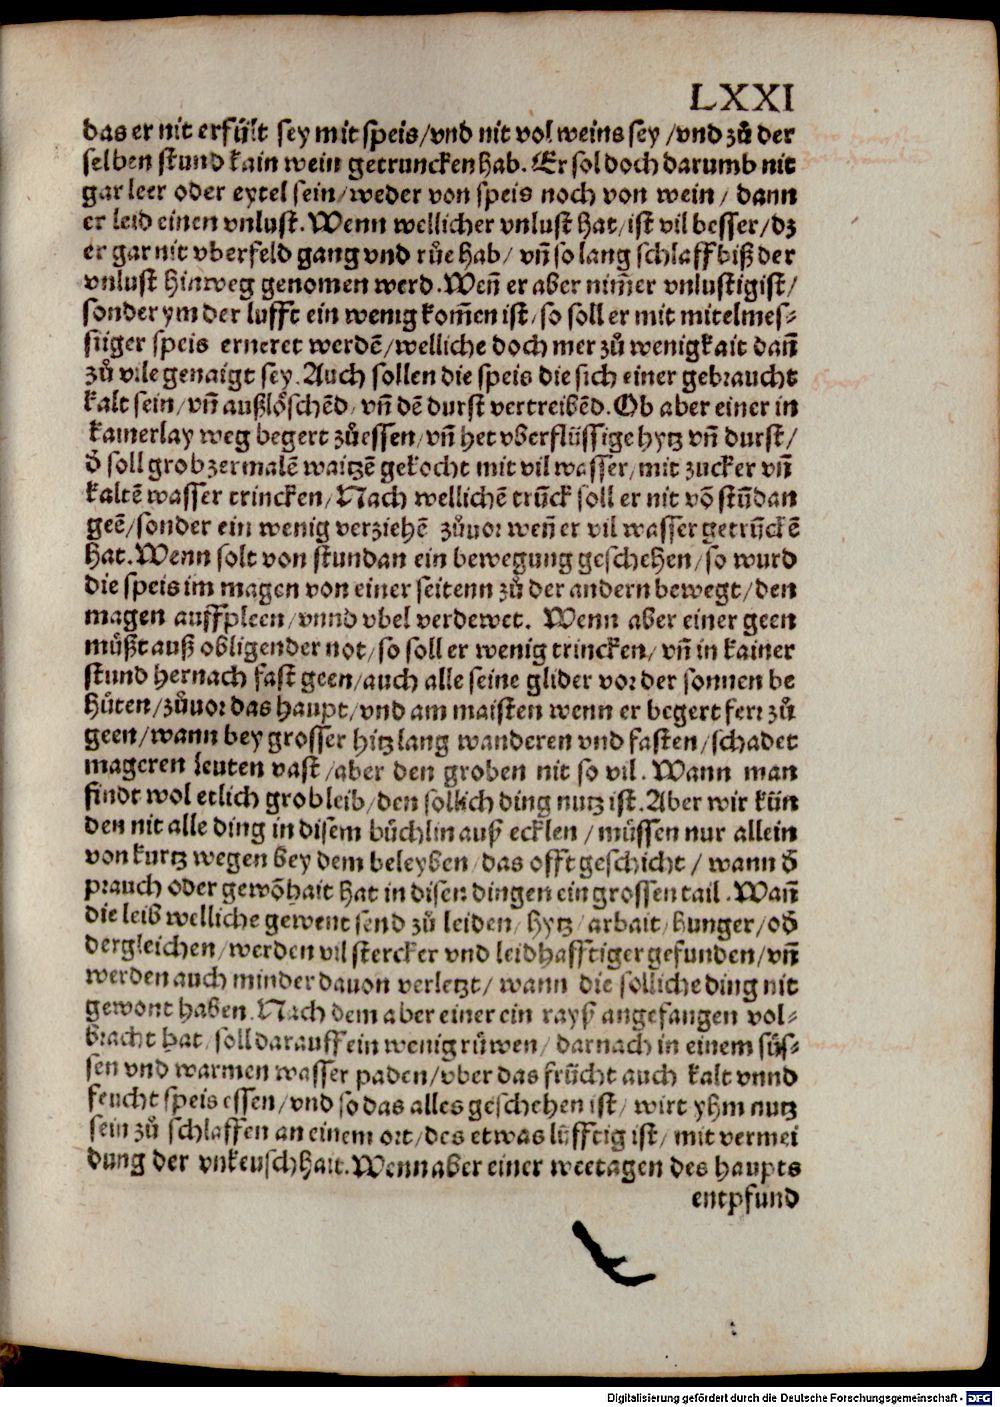 LXXI
das er nit erfült sey mit speis/vnd nit vol weins sey /vnd zů der
selben stund kain wein getruncken hab. Er sol doch darumb nit
gar leer oder eytel sein/weder von speis noch von wein / dann
er leid einen vnlust. Wenn wellicher vnlust hat/ist vil besser/dz
er gar nit vberfeld gang vnd růe hab/ vñ so lang schlaff biß der
vnlust hinweg genomen werd. Weñ er aber nim̄er vnlustig ist/
sonder ym der lufft ein wenig kom̄en ist/so soll er mit mitelmes⸗
siger speis erneret werdē/welliche doch mer zů wenigkait dañ
zů vile genaigt sey. Auch sollen die speis die sich einer gebraucht
kalt sein/vñ außlöschēd/vñ dē durst vertreibēd. Ob aber einer in
kainerlay weg begert zůessen/vñ het vberflüssige hytz vñ durst/
ð soll grob zermalē waitzē gekocht mit vil wasser/mit zucker vñ
kaltē wasser trincken/Nach wellichē trūck soll er nit vō stūdan
geē/sonder ein wenig verziehē zůuor weñ er vil wasser getrūckē
hat. Wenn solt von stundan ein bewegung geschehen/so wurd
die speis im magen von einer seitenn zů der andern bewegt/den
magen auffpleen/vnnd vbel verdewet. Wenn aber einer geen
můßt auß obligender not/so soll er wenig trincken/vñ in kainer
stund hernach fast geen/auch alle seine glider vor der sonnen be
hüten/zůuor das haupt/vnd am maisten wenn er begert ferr zů
geen/wann bey grosser hitz lang wanderen vnd fasten/schadet
mageren leuten vast/aber den groben nit so vil. Wann man
findt wol etlich grob leib/den sollich ding nutz ist. Aber wir kün
den nit alle ding in disem bůchlin auß ecklen /müssen nur allein
von kurtz wegen bey dem beleyben/das offt geschicht / wann ð
prauch oder gewōhait hat in disen dingen ein grossen tail. Wañ
die leib welliche gewent send zů leiden/hytz/arbait/hunger/oð
dergleichen/werden vil stercker vnd leidhafftiger gefunden/vñ
werden auch minder dauon verletzt/ wann die solliche ding nit
gewont haben. Nach dem aber einer ein rayß angefangen vol⸗
bracht hat/soll darauff ein wenig růwen/darnach in einem süs⸗
sen vnd warmen wasser paden/vber das frücht auch kalt vnnd
feucht speis essen/vnd so das alles geschehen ist/ wirt yhm nutz
sein zů schlaffen an einem ort/des etwas lüfftig ist/ mit vermei
dung der vnkeuschhait. Wenn aber einer weetagen des haupts
entpfund
Digitalisierung gefördert durch die Deutsche Forschungsgemeinschaft - DFG